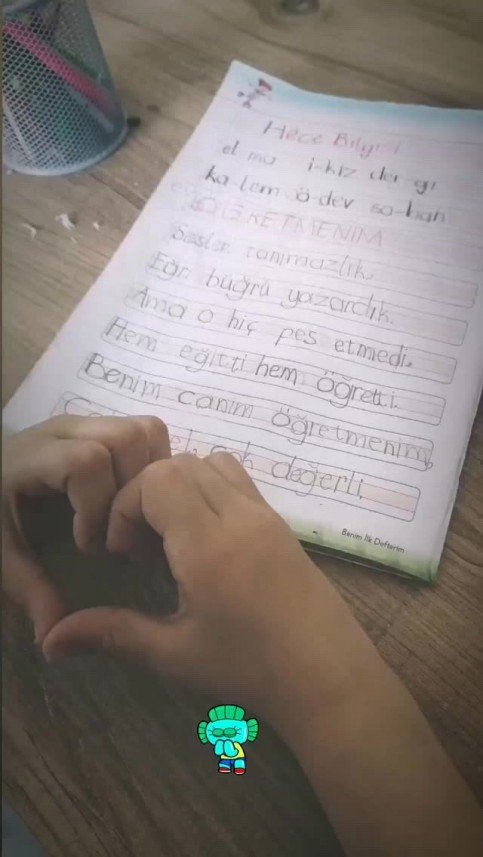 Hece Bilgisi
el ma i-kiz der-gi
ka-lem ö-dev sa-bah
ÖĞRETMENİM
Sesleri tanımazdık.
Eğri büğrü yazardık.
Ama o hiç pes etmedi.
Hem eğitti hem öğretti.
Benim canım öğretmenim,
çok değerli
Benim İlk Defterim